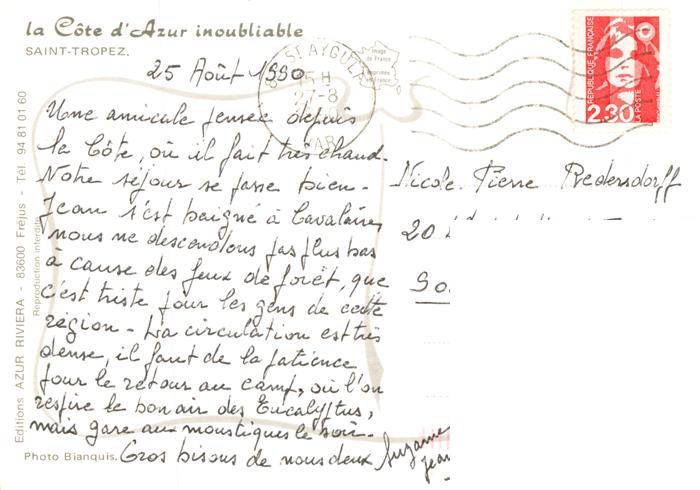 la Côte d'Azur inoubliable
SAINT-TROPEZ.
25 Août 1990
Une amicale pensée depuis
la Côte, où il fait très chaud.
Notre séjour se passe bien -
Jean s'est baigné à Cavalaire,
nous ne descendons pas plus bas
à cause des feux de forêt, que
c'est triste pour les gens de cette
région - La circulation est très
dense, il faut de la patience
pour le retour au camp, où l'on
respire le bon air des Eucalyptus,
mais gare aux moustiques le soir.
Gros bisous de nous deux Suzanne
Jean
Photo Bianquis.
Editions AZUR RIVIERA - 83600 Fréjus - Tél. 94 81 01 60
Reproduction interdite
ST AYGULF
27-8
VAR
Image de France
Imprimée en France
REPUBLIQUE FRANÇAISE
2,30 LA POSTE
Nicole. Pierre Redersdorff
20